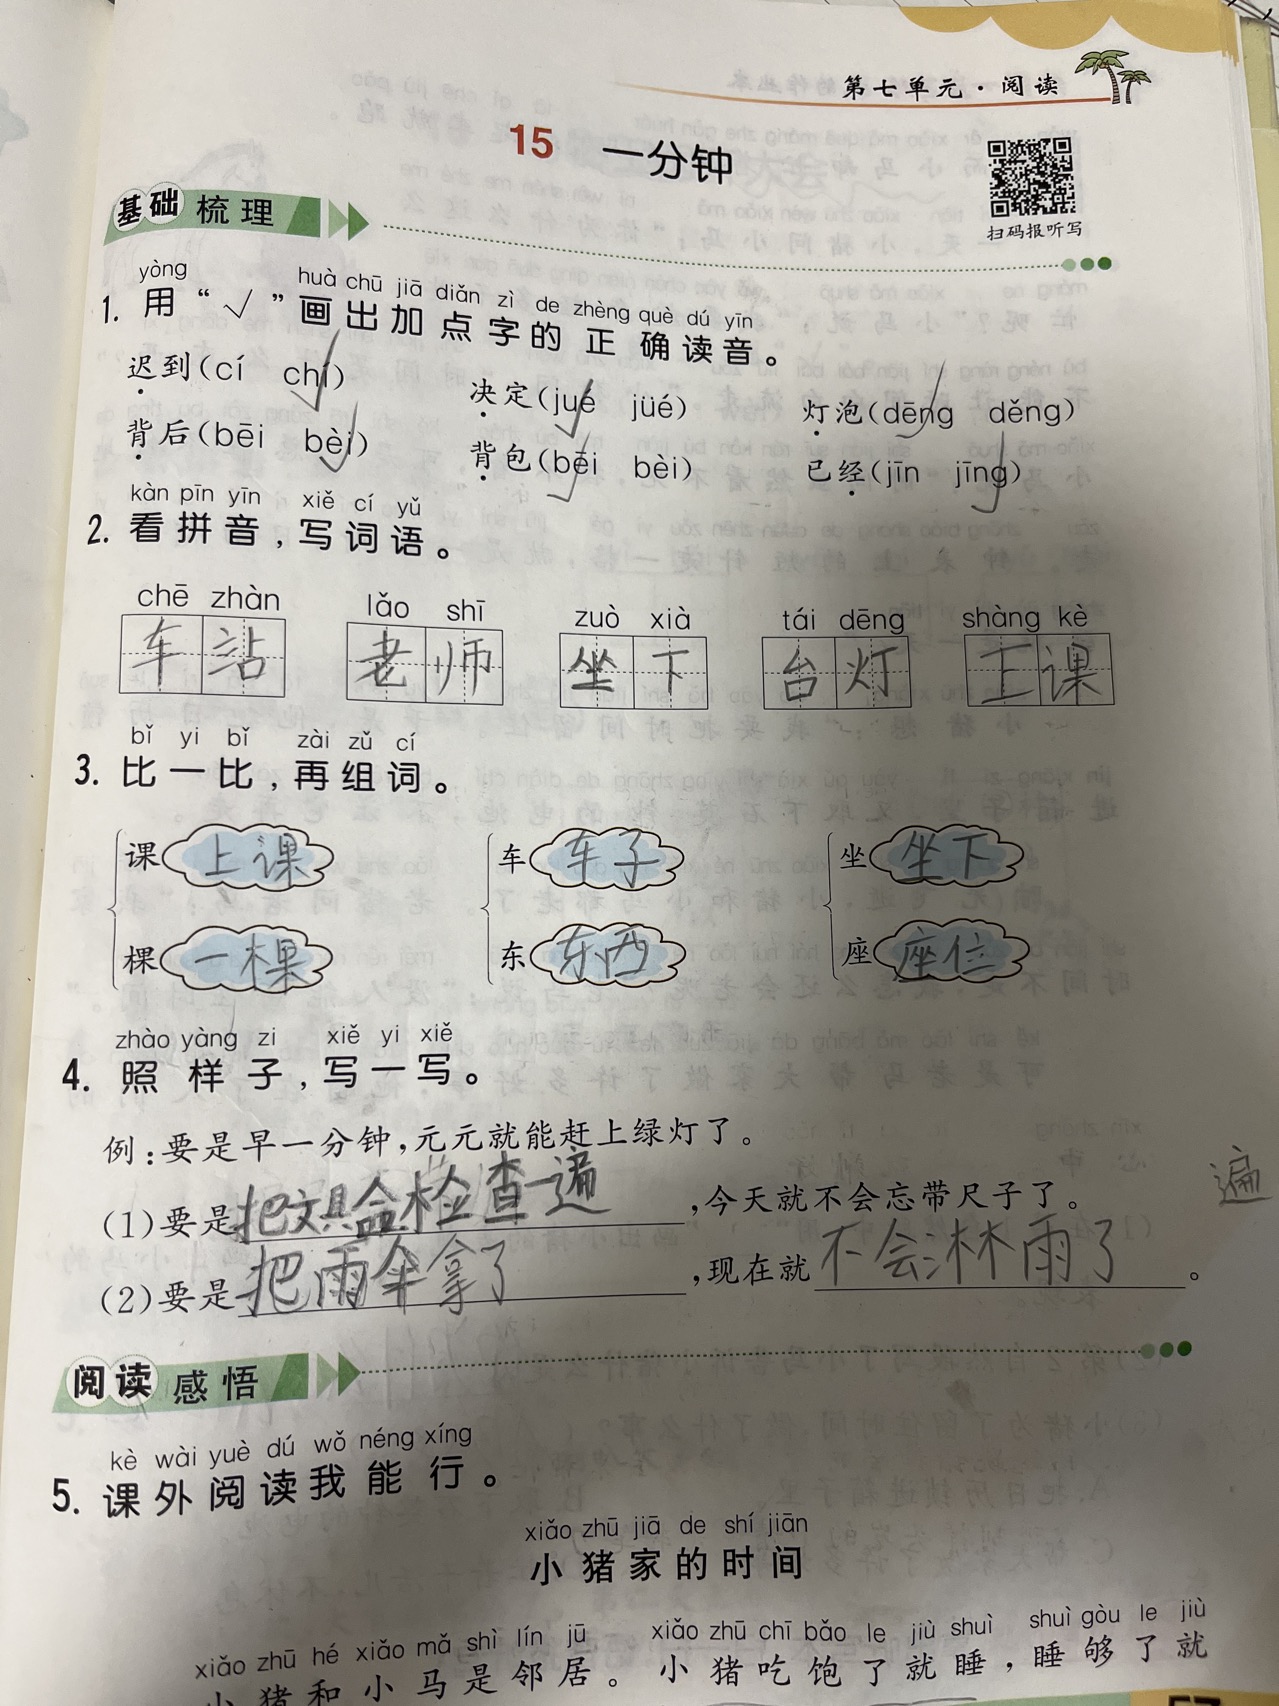 第七单元·阅读
15 一分钟
扫码报听写
基础梳理
yòng huà chū jiā diǎn zì de zhèng què dú yīn
1. 用“√”画出加点字的正确读音。
迟到(cí chí) 决定(jué jüé) 灯泡(dēng děng)
背后(bēi bèi) 背包(bēi bèi) 已经(jīn jīng)
kàn pīn yīn xiě cí yǔ
2. 看拼音,写词语。
chē zhàn lǎo shī zuò xià tái dēng shàng kè
车站 老师 坐下 台灯 上课
bǐ yi bǐ zài zǔ cí
3. 比一比,再组词。
课 上课 车 车子 坐 坐下
棵 一棵 东 东西 座 座位
zhào yàng zi xiě yi xiě
4. 照样子,写一写。
例:要是早一分钟,元元就能赶上绿灯了。
遍
(1)要是把文具盒检查一遍,今天就不会忘带尺子了。
(2)要是把雨伞拿了,现在就不会淋雨了。
阅读感悟
kè wài yuè dú wǒ néng xíng
5. 课外阅读我能行。
xiǎo zhū jiā de shí jiān
小猪家的时间
xiǎo zhū hé xiǎo mǎ shì lín jū xiǎo zhū chī bǎo le jiù shuì shuì gòu le jiù
小猪和小马是邻居。小猪吃饱了就睡,睡够了就